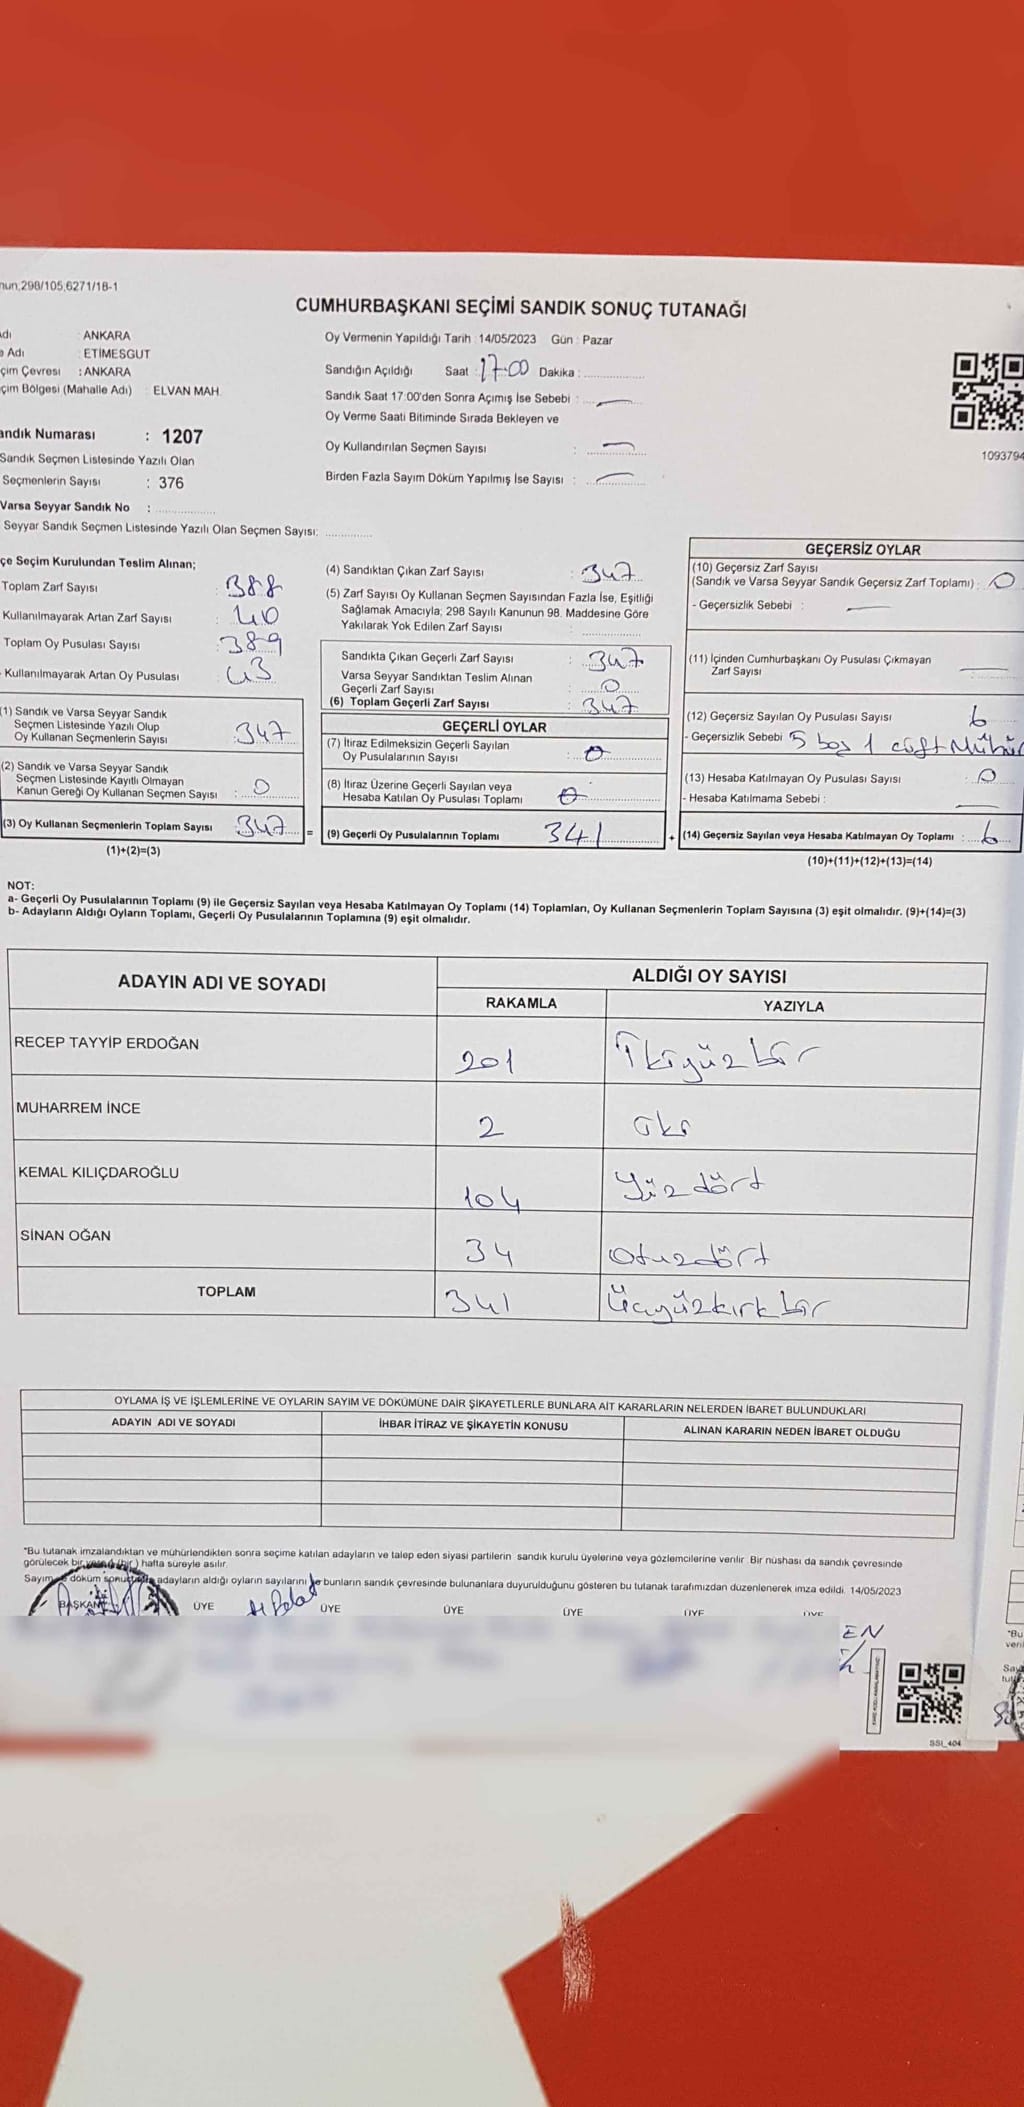 298/105,6271/18-1
CUMHURBAŞKANI SEÇİMİ SANDIK SONUÇ TUTANAĞI
: ANKARA
Adı : ETİMESGUT
Çevresi : ANKARA
Bölgesi (Mahalle Adı) : ELVAN MAH.
Numarası : 1207
Sandık Seçmen Listesinde Yazılı Olan
Seçmenlerin Sayısı : 376
Varsa Seyyar Sandık No :
Seyyar Sandık Seçmen Listesinde Yazılı Olan Seçmen Sayısı:
Oy Vermenin Yapıldığı Tarih : 14/05/2023 Gün : Pazar
Sandığın Açıldığı Saat : 17:00 Dakika :
Sandık Saat 17:00'den Sonra Açımış İse Sebebi : —
Oy Verme Saati Bitiminde Sırada Bekleyen ve
Oy Kullandırılan Seçmen Sayısı : —
Birden Fazla Sayım Döküm Yapılmış İse Sayısı : —
1093794
Seçim Kurulundan Teslim Alınan;
Toplam Zarf Sayısı : 388
Kullanılmayarak Artan Zarf Sayısı : 40
Toplam Oy Pusulası Sayısı : 389
Kullanılmayarak Artan Oy Pusulası : 43
(1) Sandık ve Varsa Seyyar Sandık
Seçmen Listesinde Yazılı Olup
Oy Kullanan Seçmenlerin Sayısı : 347
(2) Sandık ve Varsa Seyyar Sandık
Seçmen Listesinde Kayıtlı Olmayan
Kanun Gereği Oy Kullanan Seçmen Sayısı : 0
(3) Oy Kullanan Seçmenlerin Toplam Sayısı : 347 =
(1)+(2)=(3)
(4) Sandıktan Çıkan Zarf Sayısı : 347
(5) Zarf Sayısı Oy Kullanan Seçmen Sayısından Fazla İse, Eşitliği
Sağlamak Amacıyla; 298 Sayılı Kanunun 98. Maddesine Göre
Yakılarak Yok Edilen Zarf Sayısı :
Sandıkta Çıkan Geçerli Zarf Sayısı : 347
Varsa Seyyar Sandıktan Teslim Alınan
Geçerli Zarf Sayısı : 0
(6) Toplam Geçerli Zarf Sayısı : 347
GEÇERLİ OYLAR
(7) İtiraz Edilmeksizin Geçerli Sayılan
Oy Pusulalarının Sayısı : 0
(8) İtiraz Üzerine Geçerli Sayılan veya
Hesaba Katılan Oy Pusulası Toplamı : 0
(9) Geçerli Oy Pusulalarının Toplamı 341 +
GEÇERSİZ OYLAR
(10) Geçersiz Zarf Sayısı
(Sandık ve Varsa Seyyar Sandık Geçersiz Zarf Toplamı) : 0
- Geçersizlik Sebebi : —
(11) İçinden Cumhurbaşkanı Oy Pusulası Çıkmayan
Zarf Sayısı : —
(12) Geçersiz Sayılan Oy Pusulası Sayısı 6
- Geçersizlik Sebebi 5 boş 1 çift Mühür
(13) Hesaba Katılmayan Oy Pusulası Sayısı : 0
- Hesaba Katılmama Sebebi : —
(14) Geçersiz Sayılan veya Hesaba Katılmayan Oy Toplamı : 6
(10)+(11)+(12)+(13)=(14)
NOT:
a- Geçerli Oy Pusulalarının Toplamı (9) ile Geçersiz Sayılan veya Hesaba Katılmayan Oy Toplamı (14) Toplamları, Oy Kullanan Seçmenlerin Toplam Sayısına (3) eşit olmalıdır. (9)+(14)=(3)
b- Adayların Aldığı Oyların Toplamı, Geçerli Oy Pusulalarının Toplamına (9) eşit olmalıdır.
ADAYIN ADI VE SOYADI ALDIĞI OY SAYISI
RAKAMLA YAZIYLA
RECEP TAYYİP ERDOĞAN 201 İkiyüz bir
MUHARREM İNCE 2 iki
KEMAL KILIÇDAROĞLU 104 Yüz dört
SİNAN OĞAN 34 otuzdört
TOPLAM 341 Üçyüzkırk bir
OYLAMA İŞ VE İŞLEMLERİNE VE OYLARIN SAYIM VE DÖKÜMÜNE DAİR ŞİKAYETLERLE BUNLARA AİT KARARLARIN NELERDEN İBARET BULUNDUKLARI
ADAYIN ADI VE SOYADI İHBAR İTİRAZ VE ŞİKAYETİN KONUSU ALINAN KARARIN NEDEN İBARET OLDUĞU
"Bu tutanak imzalandıktan ve mühürlendikten sonra seçime katılan adayların ve talep eden siyasi partilerin sandık kurulu üyelerine veya gözlemcilerine verilir. Bir nüshası da sandık çevresinde
görülecek bir (bir) hafta süreyle asılır.
Sayım döküm adayların aldığı oyların sayılarını bunların sandık çevresinde bulunanlara duyurulduğunu gösteren bu tutanak tarafımızdan düzenlenerek imza edildi. 14/05/2023
BAŞKAN ÜYE ÜYE ÜYE ÜYE ÜYE ÜYE
EN
SSI_404